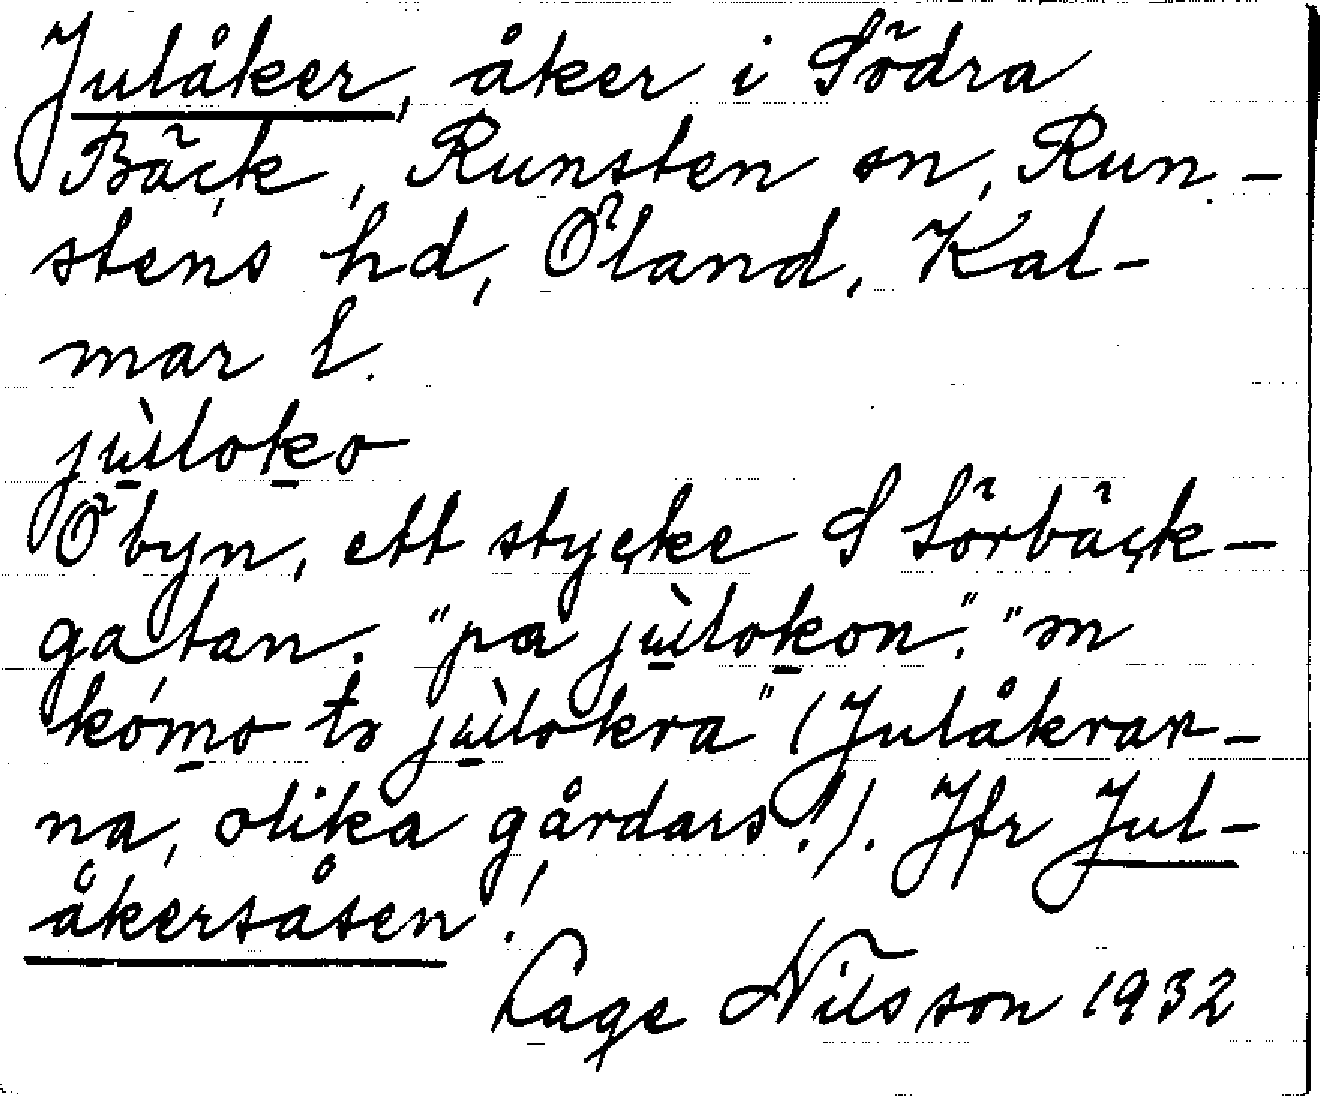 Julåker, åker i Södra
Bäck, Runsten sn, Run-
stens hd, Öland, Kal-
mar l.
jùloko
Ö byn, ett stycke S Sörbäck-
gatan. "pa jùlokon". "m
kómo ts jùlokra" (Julåkrar-
na, olika gårdars!). Jfr Jul-
åkersåsen!
Lage Nilsson 1932